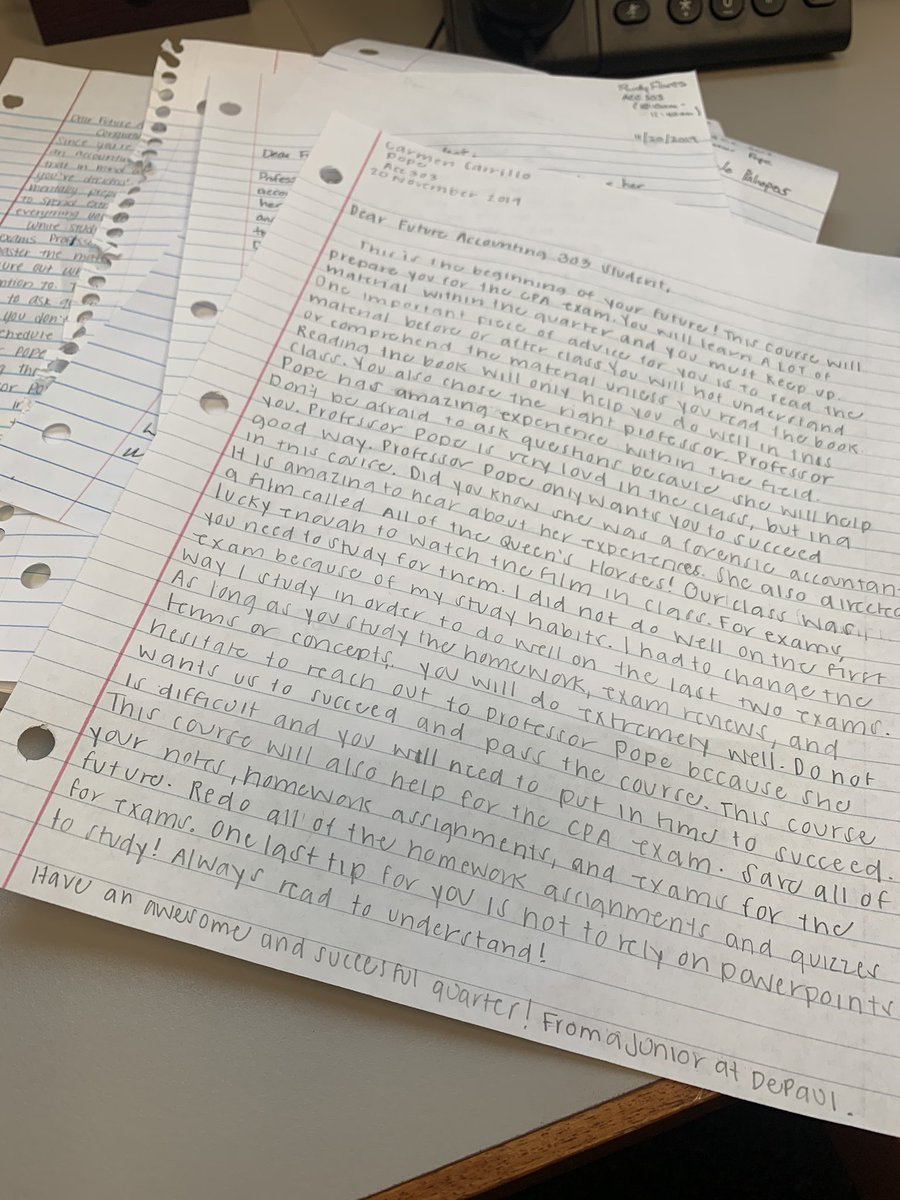 Carmen Carrillo
Pope
ACC 303
20 November 2019
Dear Future Accounting 303 Student,
This is the beginning of your future! This course will
prepare you for the CPA exam. You will learn A LOT of
material within the quarter and you must keep up.
One important piece of advice for you is to read the
material before or after class. You will not understand
or comprehend the material unless you read the book.
Reading the book will only help you do well in this
class. You also chose the right professor. Professor
Pope has amazing experience within the field.
Don't be afraid to ask questions because she will help
you. Professor Pope is very loud in the class, but in a
good way. Professor Pope only wants you to succeed
in this course. Did you know she was a forensic accountant
It is amazing to hear about her experiences. She also directed
a film called All of the Queen's Horses! Our class was
lucky enough to watch the film in class. For exams,
you need to study for them. I did not do well on the first
exam because of my study habits. I had to change the
way I study in order to do well on the last two exams.
As long as you study the homework, exam reviews, and
terms or concepts, you will do extremely well. Do not
hesitate to reach out to Professor Pope because she
wants us to succeed and pass the course. This course
is difficult and you will need to put in time to succeed.
This course will also help for the CPA exam. Save all of
your notes, homework assignments, and exams for the
future. Redo all of the homework assignments and quizzes
for exams. One last tip for you is not to rely on powerpoints
to study! Always read to understand!
Have an awesome and succesful quarter! From a Junior at DePaul.
Rudy Flores
ACC 303
11/20/2019
Dear F
Profes
acco
her
and
Dear Future A
Since you're
an accountin
that in mind
you've decided
mentally prep
to spend ext
everything you
While stud
exams Profess
master the mat
to ask q
you don't
schedule
Pope
her
Pope